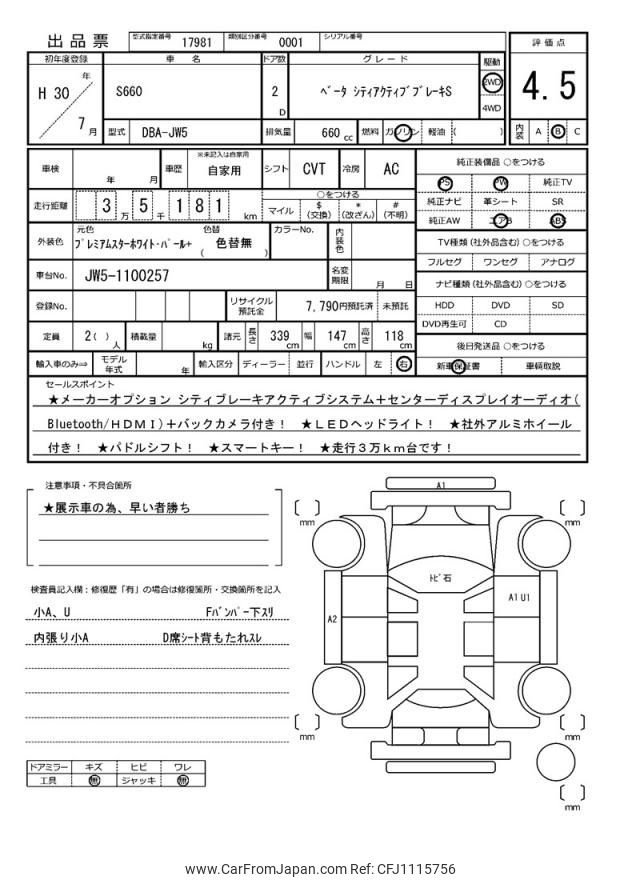 出品票 型式指定番号 17981 類別区分番号 0001 シリアル番号
評価点
4.5
内装 A B C
初年度登録 車名 ドア数 グレード 駆動
H 30 年 7 月
S660 2 D ベータ シティアクティブブレーキS 2WD 4WD
型式 DBA-JW5 排気量 660 cc 燃料 ガソリン 軽油 ( )
車検 年 月 車歴 ※未記入は自家用 自家用 シフト CVT 冷房 AC
走行距離 3万 5千 1 8 1 km ○をつける マイル $(交換) *(改ざん) #(不明)
外装色 元色 プレミアムスターホワイト・パール+ 色替 ( 色替無 ) カラーNo. 内装色
車台No. JW5-1100257 名変期限 月 日
登録No. リサイクル預託金 7,790円預託済 未預託
定員 2( )人 積載量 kg 諸元 長さ 339 cm 幅 147 cm 高さ 118 cm
輸入車のみ⇒ モデル年式 年 輸入区分 ディーラー 並行 ハンドル 左 右
純正装備品 ○をつける
PS PW 純正TV
純正ナビ 革シート SR
純正AW エアB ABS
TV種類(社外品含む)○をつける
フルセグ ワンセグ アナログ
ナビ種類(社外品含む)○をつける
HDD DVD SD
DVD再生可 CD
後日発送品 ○をつける
新車保証書 車輌取説
セールスポイント
★メーカーオプション シティブレーキアクティブシステム+センターディスプレイオーディオ(
Bluetooth/HDMI)+バックカメラ付き! ★LEDヘッドライト! ★社外アルミホイール
付き! ★パドルシフト! ★スマートキー! ★走行3万km台です!
注意事項・不具合箇所
★展示車の為、早い者勝ち
検査員記入欄:修復歴「有」の場合は修復箇所・交換箇所を記入
小A、U Fバンパー下スリ
内張り小A D席シート背もたれスレ
ドアミラー キズ ヒビ ワレ
工具 無 ジャッキ 無
A1
トビ石
A2
A1 U1
mm
mm
mm
mm
mm
www.CarFromJapan.com Ref: CFJ1115756